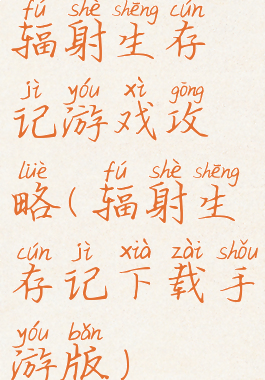 fú shè shēng cún
辐射生存
jì yóu xì gōng
记游戏攻
lüè fú shè shēng
略(辐射生
cún jì xià zài shǒu
存记下载手
yóu bǎn
游版)